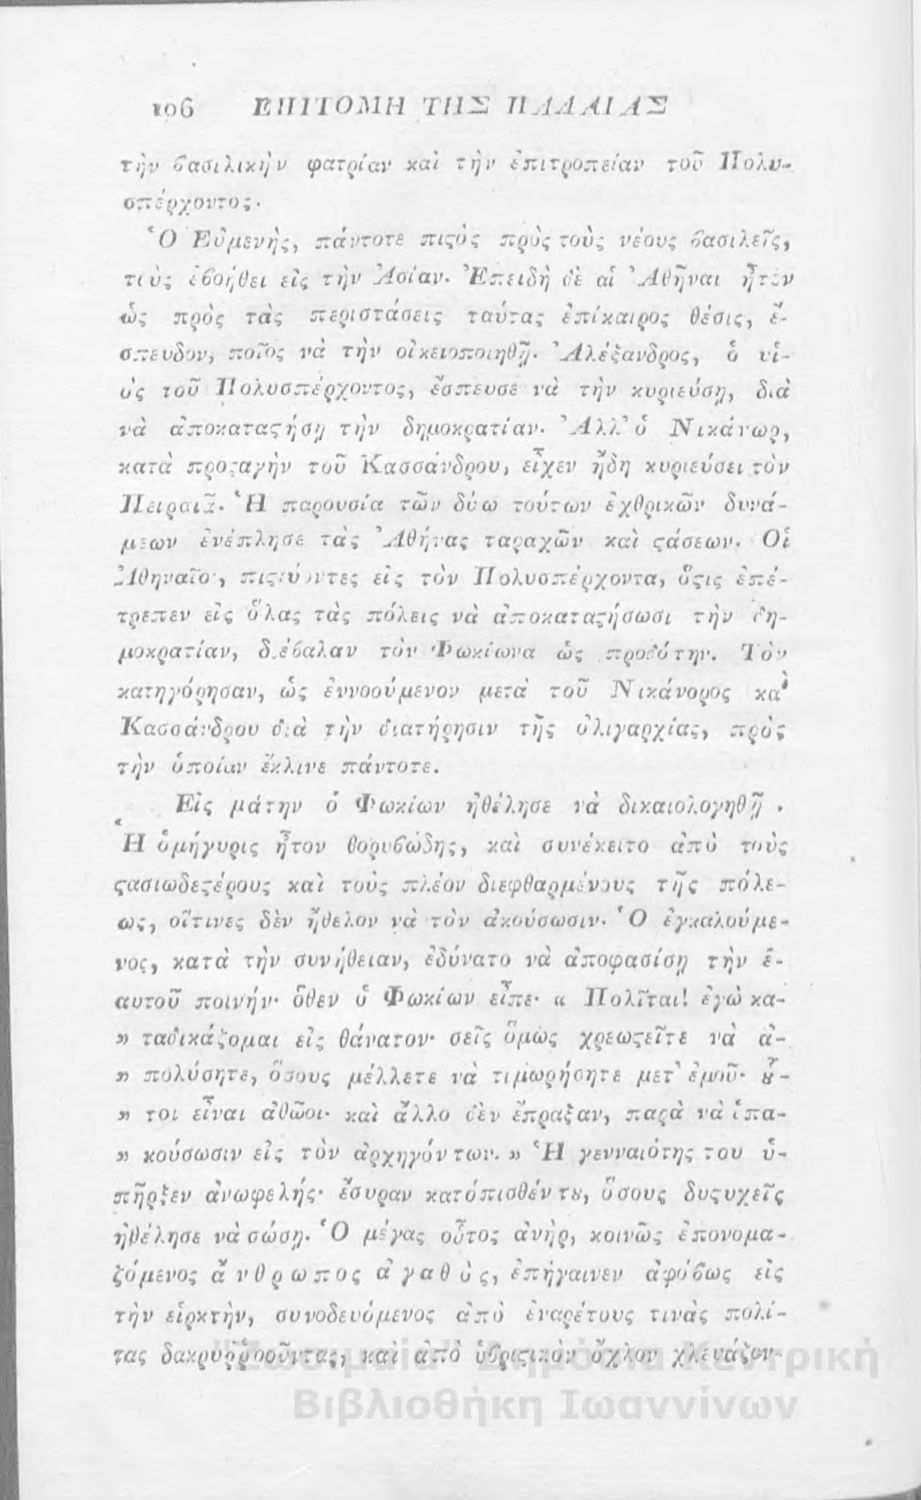 106 ΕΠΙΤΟΜΗ ΤΗΣ ΠΑΛΑΙΑΣ
τὴν βασιλικὴν φατρίαν καὶ τὴν ἐπιτροπείαν τοῦ Πολυ-
σπέρχοντος.
Ὁ Εὐμενὴς, πάντοτε πιςὸς πρὸς τοὺς νέους βασιλεῖς,
τοὺς ἐβοήθει εἰς τὴν Ἀσίαν. Ἐπειδὴ δὲ αἱ Ἀθῆναι ἦτον
ὡς πρὸς τὰς περιστάσεις ταύτας ἐπίκαιρος θέσις, ἔ-
σπευδον, ποῖος νὰ τὴν οἰκειοποιηθῇ. Ἀλέξανδρος, ὁ υἱ-
ὸς τοῦ Πολυσπέρχοντος, ἔσπευσε νὰ τὴν κυριεύσῃ, διὰ
νὰ ἀποκαταςήσῃ τὴν δημοκρατίαν. Ἀλλ' ὁ Νικάνωρ,
κατὰ προςαγὴν τοῦ Κασσάνδρου, εἶχεν ἤδη κυριεύσει τὸν
Πειραιᾶ. Ἡ παρουσία τῶν δύω τούτων ἐχθρικῶν δυνά-
μεων ἐνέπλησε τὰς Ἀθήνας ταραχῶν καὶ ςάσεων. Οἱ
Ἀθηναῖοι, πιςεύοντες εἰς τὸν Πολυσπέρχοντα, ὅςις ἐπέ-
τρεπεν εἰς ὅλας τὰς πόλεις νὰ ἀποκαταςήσωσι τὴν δη-
μοκρατίαν, διέβαλαν τὸν Φωκίωνα ὡς προδότην. Τὸν
κατηγόρησαν, ὡς ἐννοούμενον μετὰ τοῦ Νικάνορος καὶ
Κασσάνδρου διὰ τὴν διατήρησιν τῆς ὀλιγαρχίας, πρὸς
τὴν ὁποίαν ἔκλινε πάντοτε.
Εἰς μάτην ὁ Φωκίων ἠθέλησε νὰ δικαιολογηθῇ.
Ἡ ὁμήγυρις ἦτον θορυβώδης, καὶ συνέκειτο ἀπὸ τοὺς
ςασιωδεςέρους καὶ τοὺς πλέον διεφθαρμένους τῆς πόλε-
ως, οἵτινες δὲν ἤθελον νὰ τὸν ἀκούσωσιν. Ὁ ἐγκαλούμε-
νος, κατὰ τὴν συνήθειαν, ἐδύνατο νὰ ἀποφασίσῃ τὴν ἑ-
αυτοῦ ποινήν· ὅθεν ὁ Φωκίων εἶπε· « Πολῖται! ἐγὼ κα-
» ταδικάζομαι εἰς θάνατον· σεῖς ὅμως χρεωςεῖτε νὰ ἀ-
» πολύσητε, ὅσους μέλλετε νὰ τιμωρήσητε μετ' ἐμοῦ· ȣ̃-
» τοι εἶναι ἀθῶοι· καὶ ἄλλο δὲν ἔπραξαν, παρὰ νὰ ὑπα-
» κούσωσιν εἰς τὸν ἀρχηγόν των. » Ἡ γενναιότης του ὑ-
πῆρξεν ἀνωφελής· ἔσυραν κατόπισθέν τȣ, ὅσους δυςυχεῖς
ἠθέλησε νὰ σώσῃ. Ὁ μέγας οὗτος ἀνὴρ, κοινῶς ἐπονομα-
ζόμενος ἄνθρωπος ἀγαθὸς, ἐπήγαινεν ἀφόβως εἰς
τὴν εἱρκτὴν, συνοδευόμενος ἀπὸ ἐναρέτους τινὰς πολί-
τας δακρυῤῥοοῦντας, καὶ ἀπὸ ὑβριςικὸν ὄχλον χλευάζον-
Δημόσια Κεντρική
Βιβλιοθήκη Ιωαννίνων